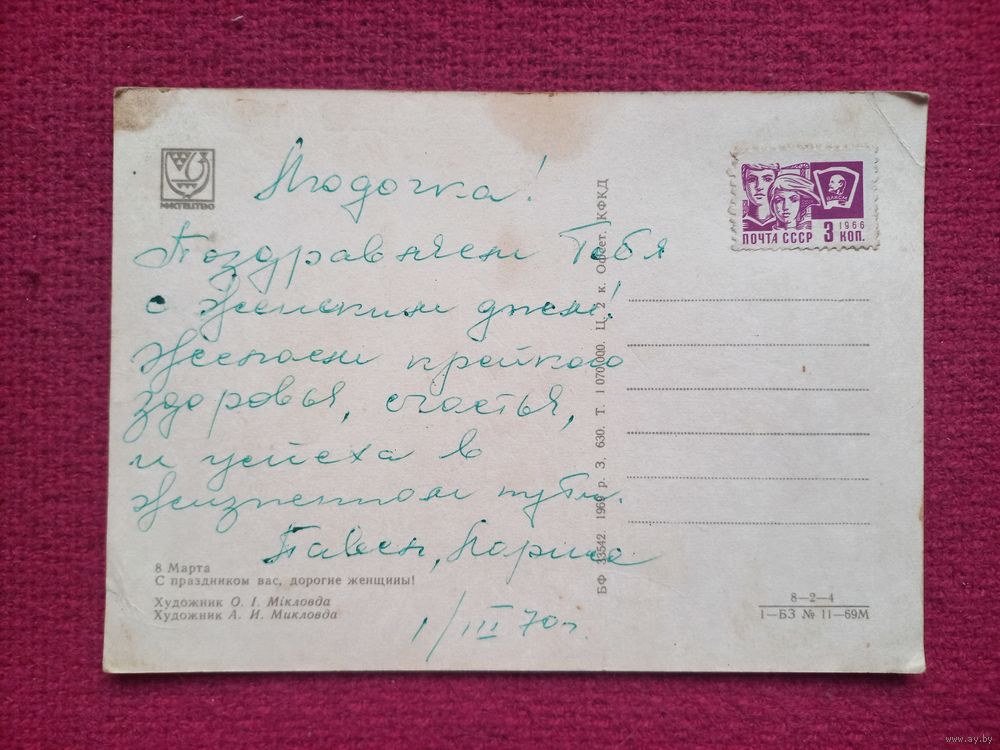 МИСТЕЦТВО
Людочка!
Поздравляем Тебя
с Женским днем!
Желаем крепкого
здоровья, счастья,
и успеха в
жизненном пути.
Павел, Лариса
1/III 70 г.
8 Марта
С праздником вас, дорогие женщины!
Художник О. І. Мікловда
Художник А. И. Микловда
БФ 33542 1969 р. З. 630. Т. 1 070 000. Ц. 2 к. Офсет. КФКД
ВЛКСМ
1966
ПОЧТА СССР 3 КОП.
8—2—4
1—БЗ № 11—69М
www.ay.by